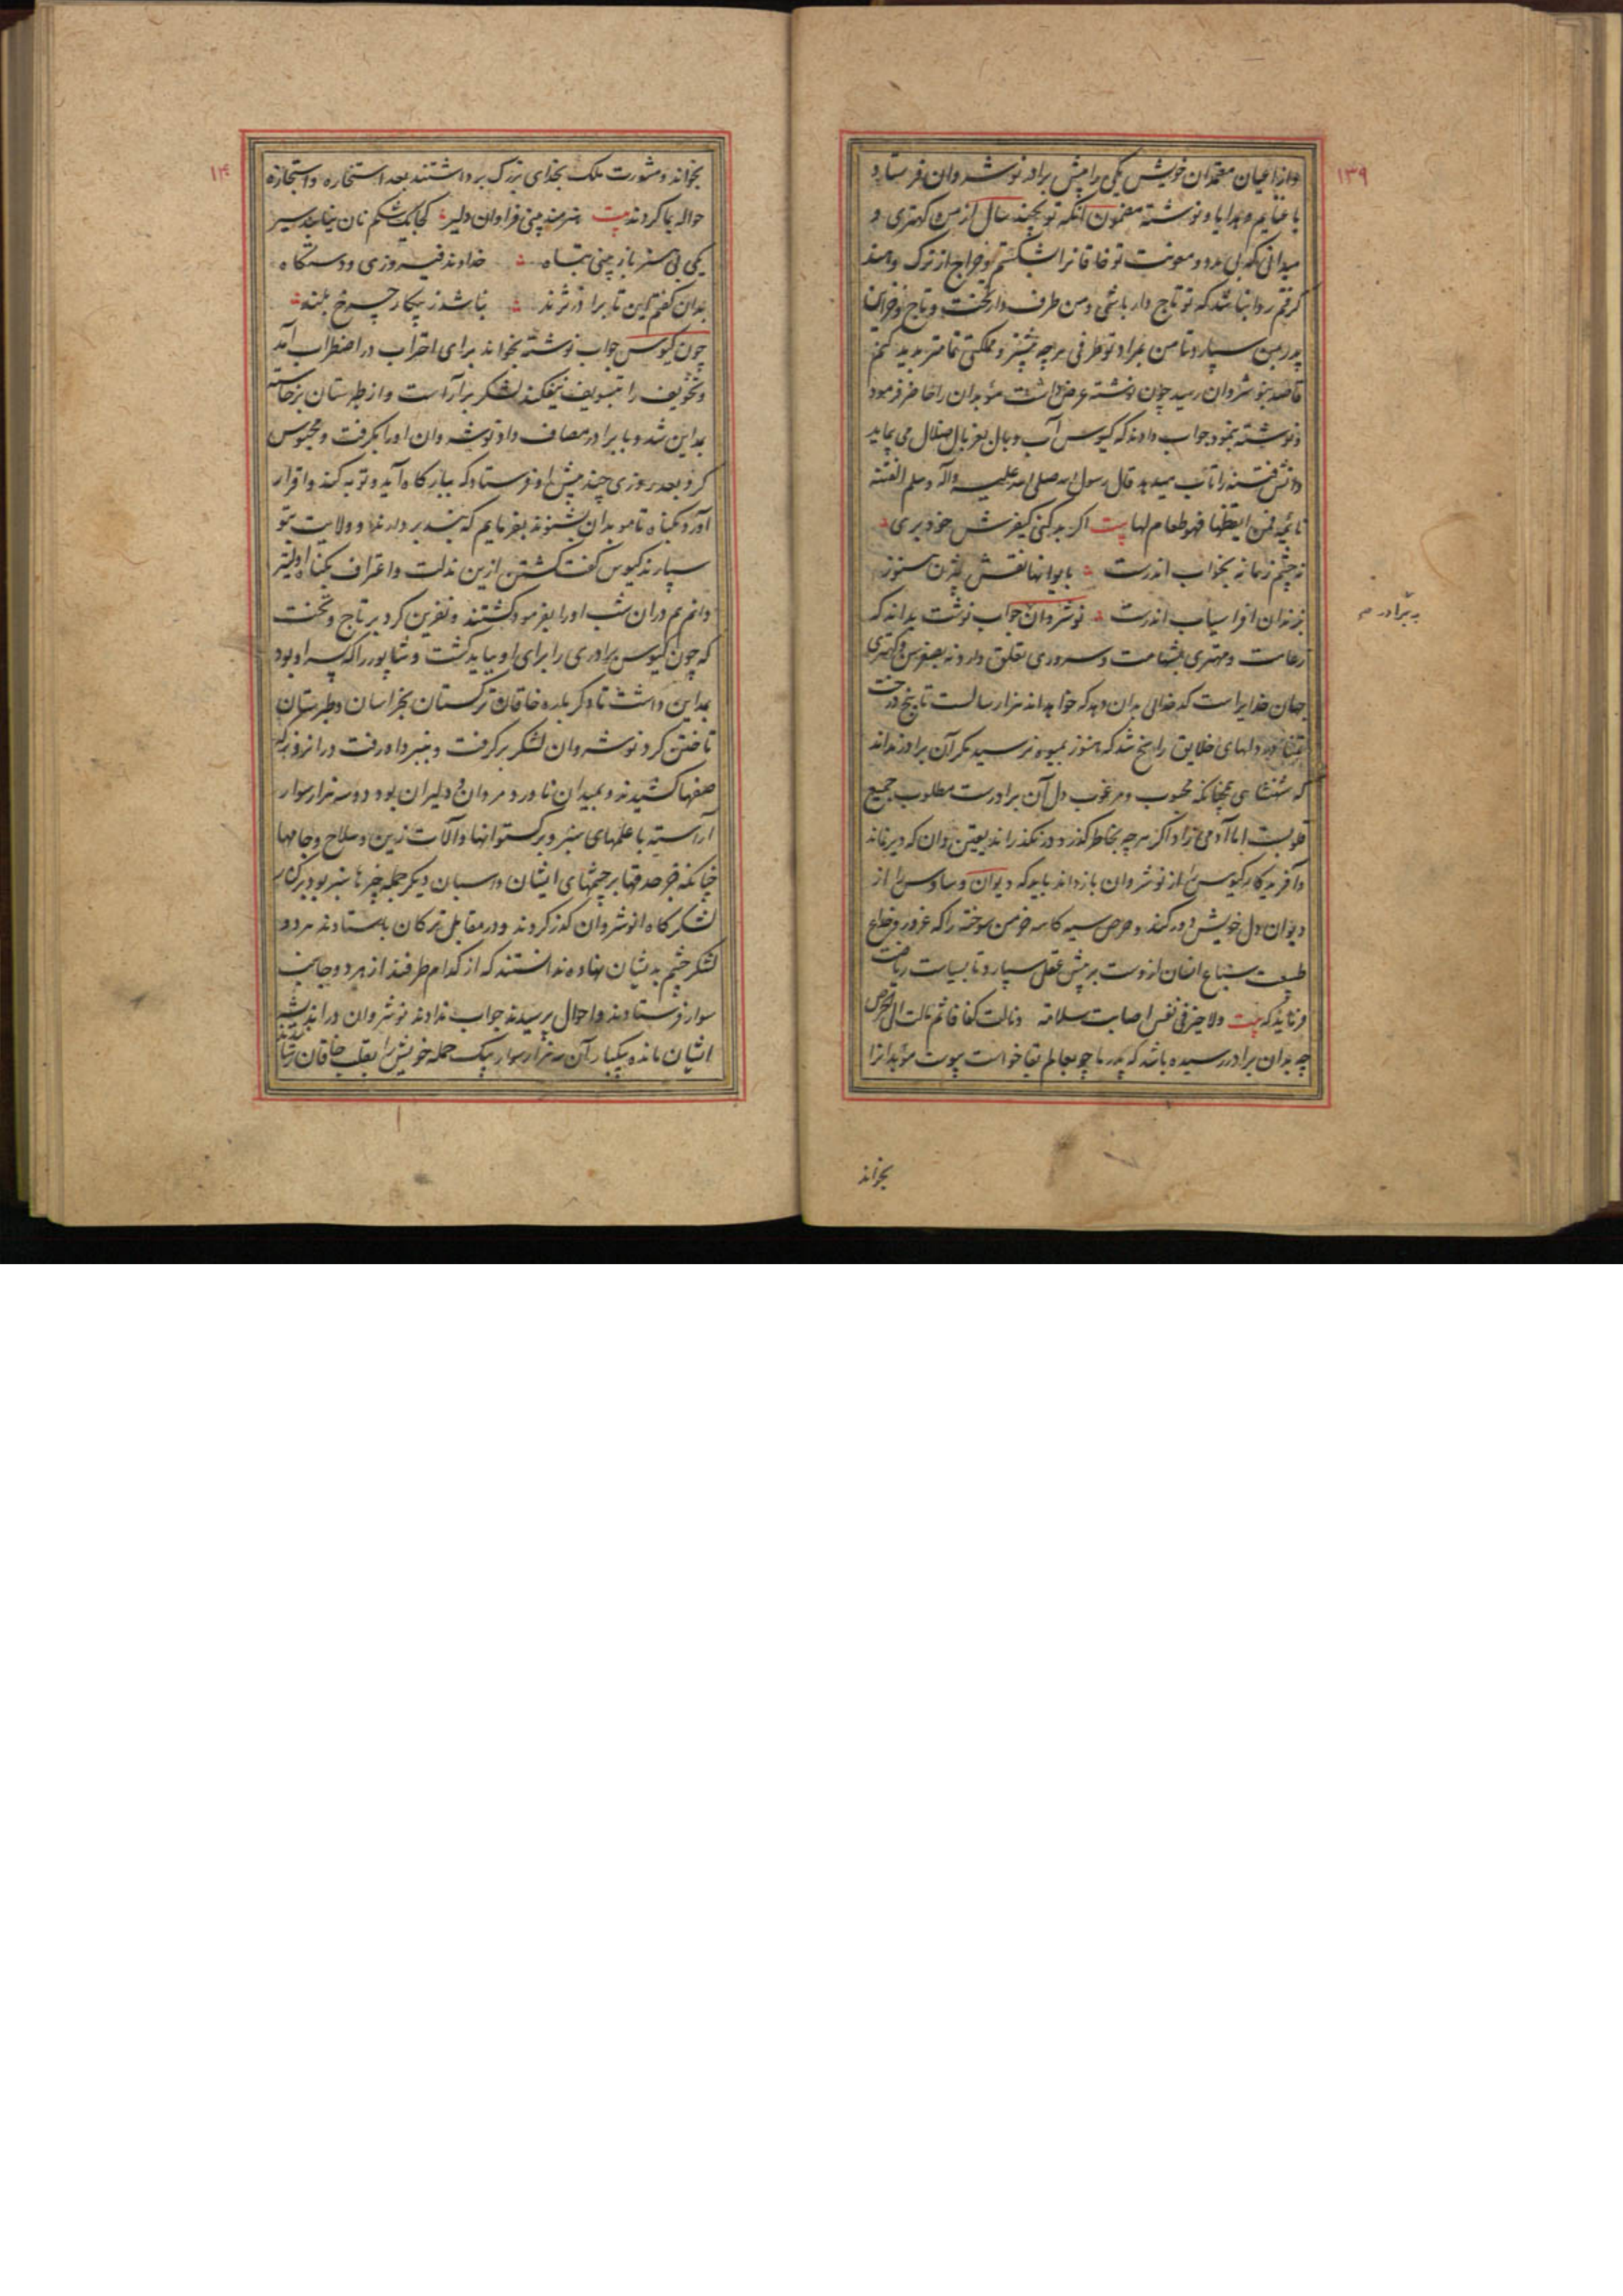 ۱۳۹
و از اعیان معتمدان خویش یکی را پیش برادر نوشروان فرستاد
با غنایم و هدایا و نوشته مضمون آنکه تو بچند سال از من کهتری و
میدانی که بی مدد و معونت تو خاقانرا شکستم و خراج از ترک و هند
گرفتم روا نباشد که تو تاج دار باشی و من طرف دار تخت و تاج و خزاین
پدر بمن سپار و تا من بمراد تو طرفی هر چه بیشتر و مملکتی تمامتر پدید کنم
قاصد بنوشروان رسید چون نوشته عرض داشت موبدان را حاضر فرمود
و نوشته بنمود جواب دادند که کیوس آب وبال بغربال ضلال می پیماید
و آتش فتنه را تاب میدهد قال رسول الله صلی الله علیه و آله و سلم الفتنة
نائمة فمن ایقظها فهو طعام لها بیت اگر بد کنی کیفرش خود بری
نه چشم زمانه بخواب اندرست بایوانها نقش بیژن هنوز
بزندان افراسیاب اندرست نوشروان جواب نوشت بداند که
به برادرم
زعامت و مهتری بشهامت و سروری تعلق دارد نه بعضوس و کهتری
جهان خدایراست که خدائی بدان دهد که خواهد اند هزار سالست تا بیخ درخت
در دلهای خلایق راسخ شد که هنوز بمیوه نرسید مگر آن برادر نداند
که شهنشاهی همچنانکه محبوب و مرغوب دل آن برادرست مطلوب جمیع
قلوبست اما آدمی زاد اگر هر چه بخاطر گذرد و در نگذراند یقین دان که دیر نماند
و آفریدگار کیوس را از نوشروان باز داند باید که دیوان وساوس را از
دیوان دل خویش دور کند و حرص سیه کاسه خرمن سوخته را که غرور و خداع
طبیعت سباع انسان ازوست بر پیش عقل سپارد تا بسیاست ریاضت
فرماید که بیت ولا خیر فی نفس اصابت سلامة ونالت کفافا ثم مالت الی الحرص
چه بدان برادر رسیده باشد که پدر ما چو بعالم بقا خواست پیوست موبدانرا
بخواند
۱۴۰
بخواند و مشورت ملک بخدای بزرگ برداشتند بعد استخاره و استجازه
حواله بما کردند بیت هنرمند بینی فراوان دلیر کجا یک شکم نان نیابند سیر
یکی بی هنر باز بینی تباه خداوند فیروزی و دستگاه
بدان گفتم این تا برادر نژند نباشد ز پیکار چرخ بلند
چون کیوس جواب نوشته بخواند برای احتراب در اضطراب آمد
و تخویف را بتسویف نیفکند لشکر بر آراست و از طبرستان برخاسته
بمداین شد و با برادر مصاف داد نوشروان او را بگرفت و محبوس
کرد بعد روزی چند پیش او فرستاد که ببارگاه آید و توبه کند و اقرار
آورد بگناه تا موبدان بشنوند بفرمایم که بند بردارند و ولایت بتو
سپارند کیوس گفت کشتن ازین مذلت و اعتراف بگناه اولیتر
دانم هم در آن شب او را بفرمود کشتند و نفرین کرد بر تاج و تخت
که چون کیوس برادری را برای او بباید کشت و شاپور را که پسر او بود
بمداین داشت تا دگر باره خاقان ترکستان بخراسان و طبرستان
تاختن کرد نوشروان لشکر بر گرفت و بنبرد او رفت در انروز که
صفها کشیدند و بمیدان ناورد مردان و دلیران بود دو سه هزار سوار
آراسته با علمهای سبز و برگستوانها و آلات زین و سلاح و جامها
چنانکه جز حدقها بر چشمهای ایشان و اسبان دیگر جمله چیزها سبز بود بر کنار
لشکرگاه انوشروان گذر کردند و در مقابل ترکان بایستادند هر دو
لشکر چشم بدیشان نهاده ندانستند که از کدام طرفند از هر دو جانب
سوار فرستادند و احوال پرسیدند جواب ندادند نوشروان در اندیشه
ایشان مانده بیکبار آن سه هزار سوار بیک حمله خویش را بقلب خاقان رسانیدند